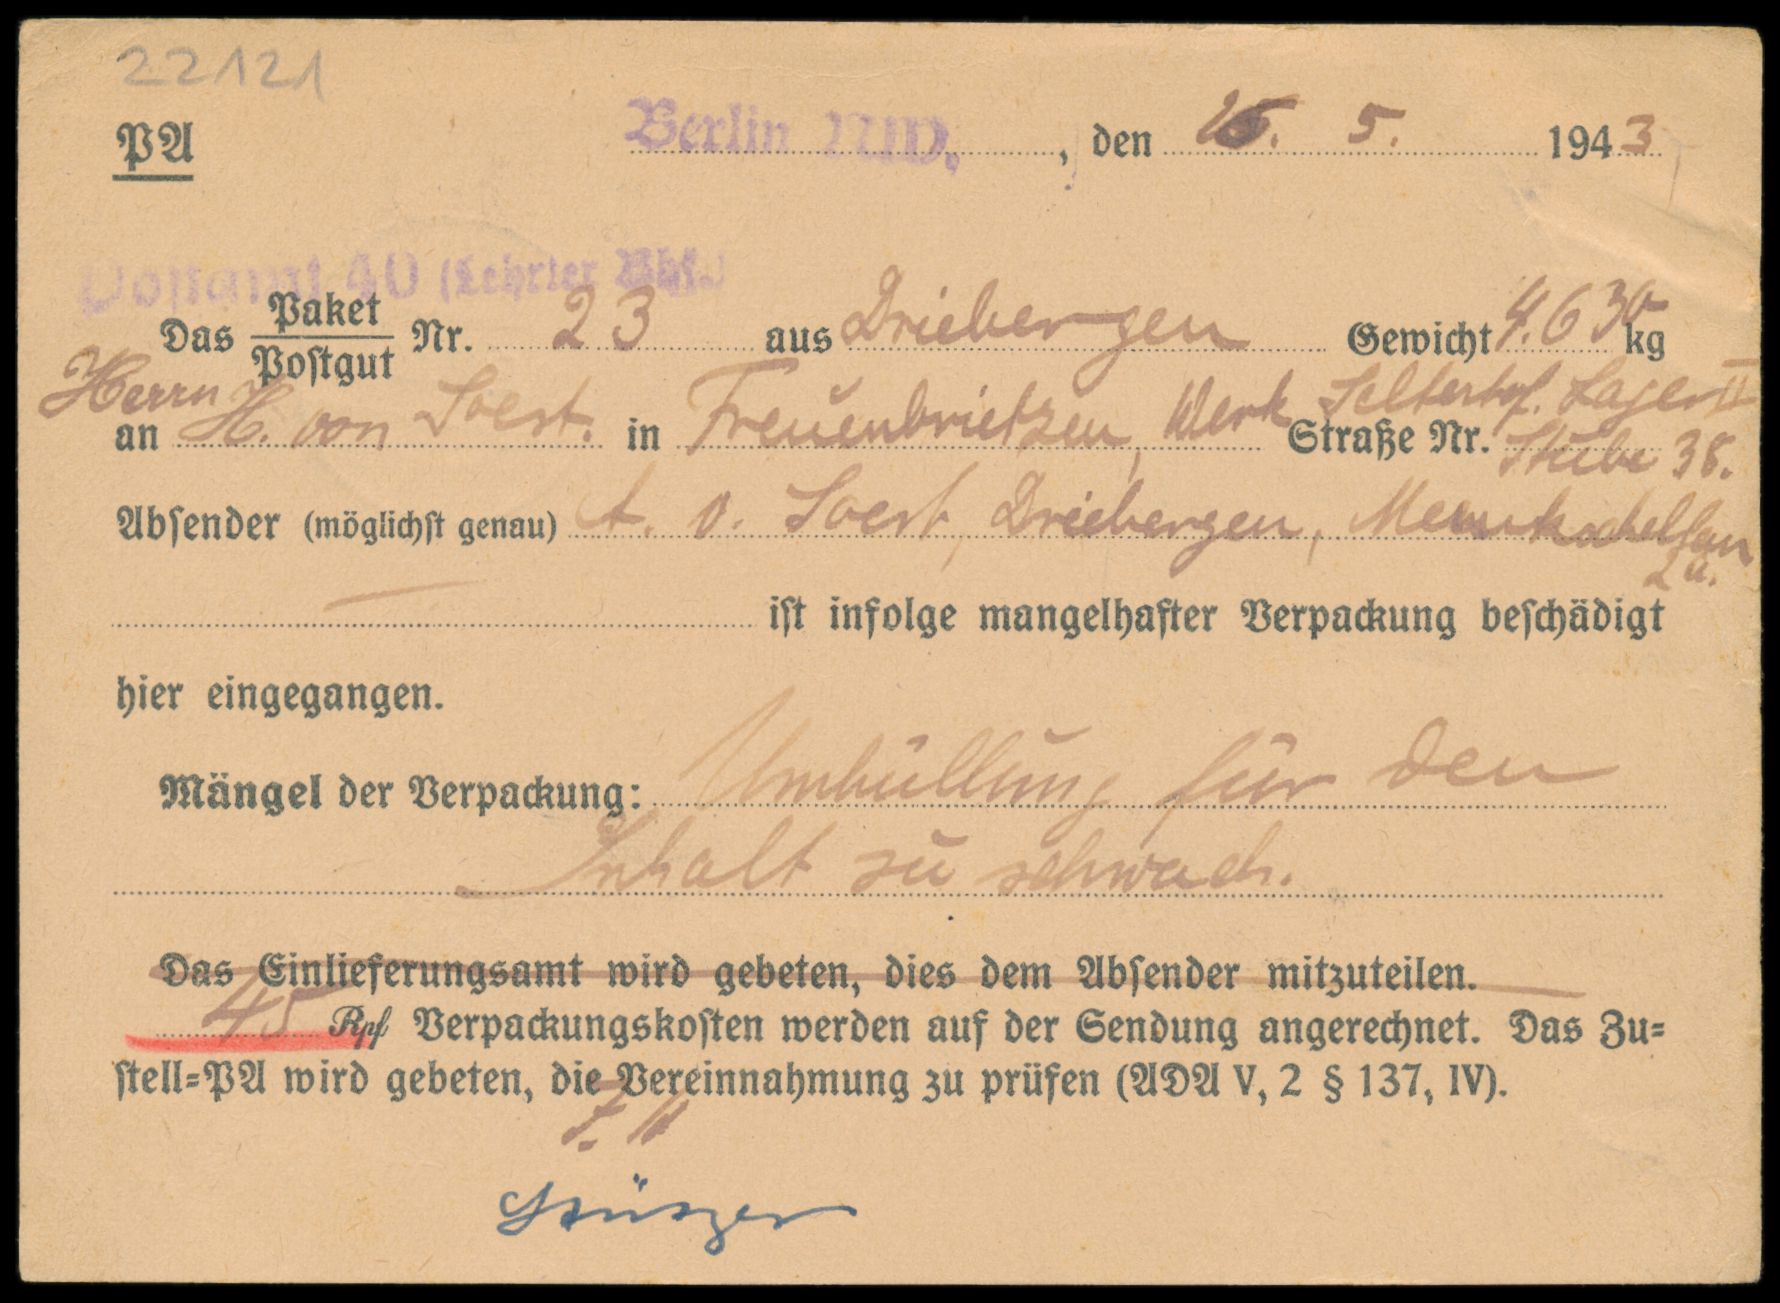 22121
PA Berlin NW. , den 5. 1943
Postamt 40 (Lehrter Bhf.)
Das Paket/Postgut Nr. 23 aus Driebergen Gewicht 4.630 kg
Herrn Selterhof. Lager II
an H. von Soest. in Treuenbrietzen, Werk Straße Nr. Stube 38.
Absender (möglichst genau) A. v. Soest, Driebergen,
2a.
— ist infolge mangelhafter Verpackung beschädigt
hier eingegangen.
Mängel der Verpackung: Umhüllung für den
Inhalt zu schwach.
Das Einlieferungsamt wird gebeten, dies dem Absender mitzuteilen.
45 Rpf Verpackungskosten werden auf der Sendung angerechnet. Das Zu=
stell=PA wird gebeten, die Vereinnahmung zu prüfen (ADA V, 2 § 137, IV).